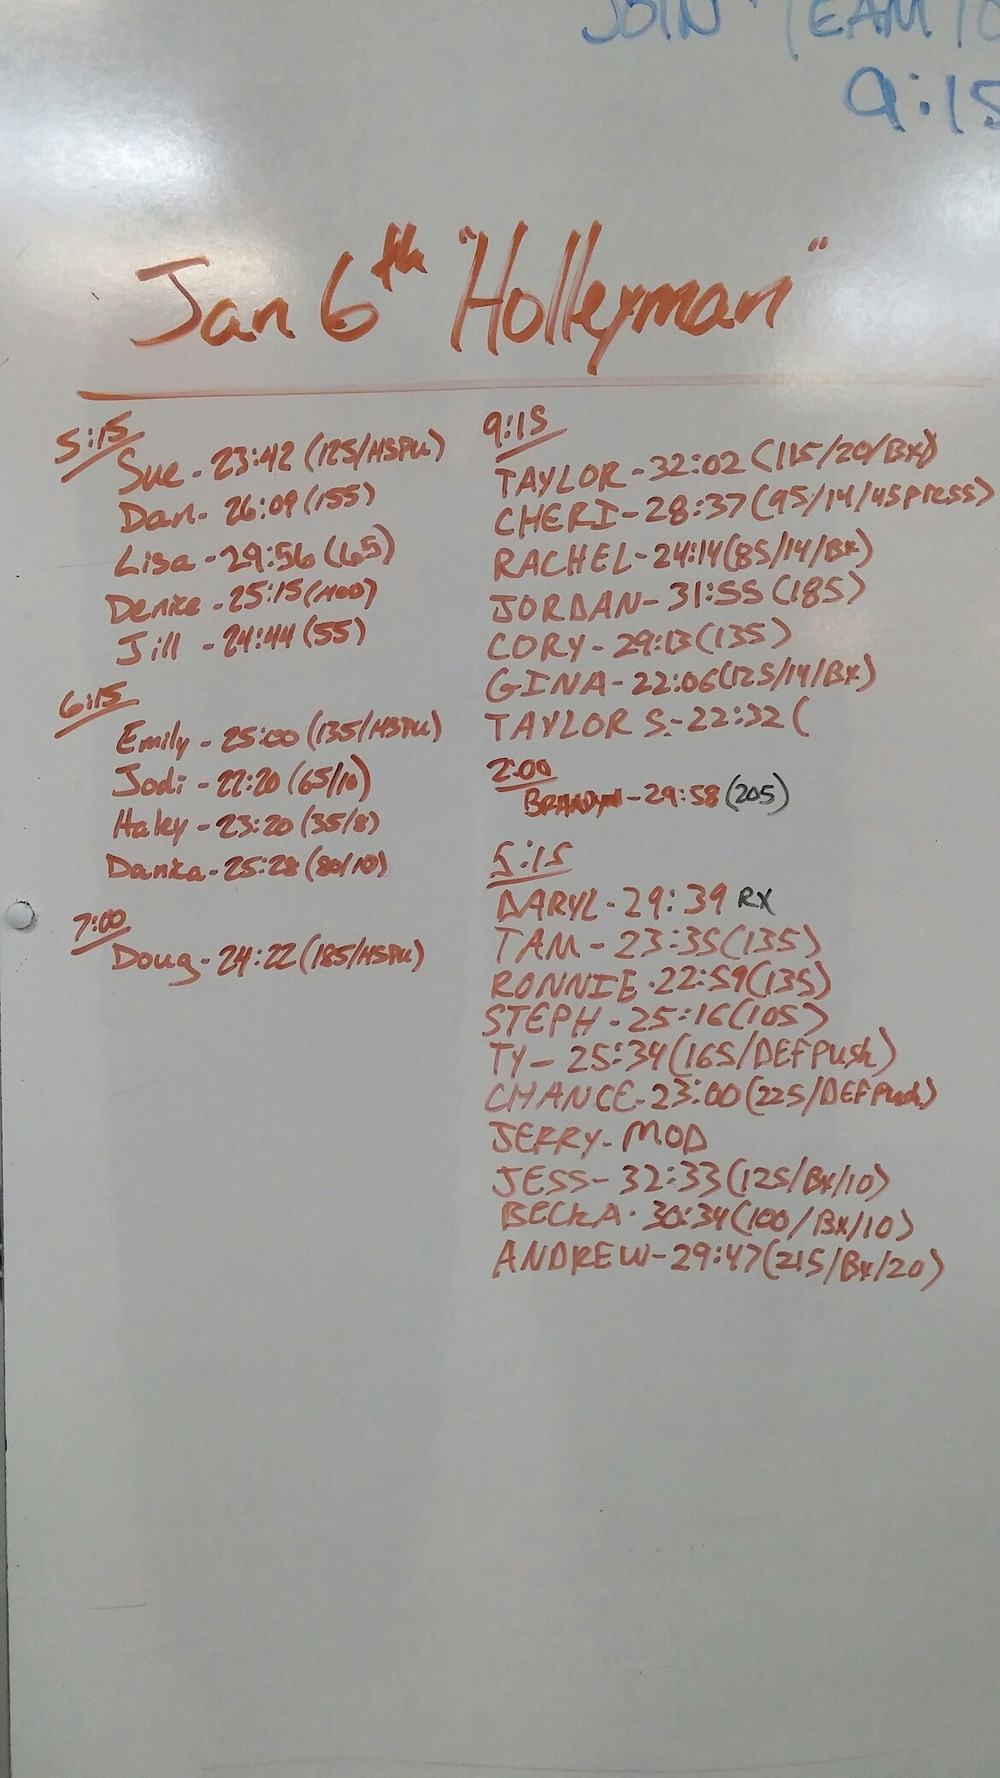 JOIN TEAM
9:15
Jan 6th "Holleyman"
5:15
Sue - 23:42 (125/HSPU)
Dan - 26:09 (155)
Lisa - 29:56 (65)
Denise - 25:15 (MOD)
Jill - 24:44 (55)
6:15
Emily - 25:00 (135/HSPU)
Jodi - 22:20 (65/10)
Haley - 23:20 (35/8)
Danica - 25:28 (80/10)
7:00
Doug - 24:22 (185/HSPU)
9:15
TAYLOR - 32:02 (115/20/Bx)
CHERI - 28:37 (95/14/45press)
RACHEL - 24:14 (85/14/Bx)
JORDAN - 31:55 (185)
CORY - 29:13 (135)
GINA - 22:06 (125/14/Bx)
TAYLOR S. - 22:32 (
2:00
BRANDYN - 29:58 (205)
5:15
DARYL - 29:39 RX
TAM - 23:35 (135)
RONNIE - 22:59 (135)
STEPH - 25:16 (105)
TY - 25:34 (165/DEFPush)
CHANCE - 23:00 (225/DEFPush)
JERRY - MOD
JESS - 32:33 (125/Bx/10)
BECKA - 30:34 (100/Bx/10)
ANDREW - 29:47 (215/Bx/20)